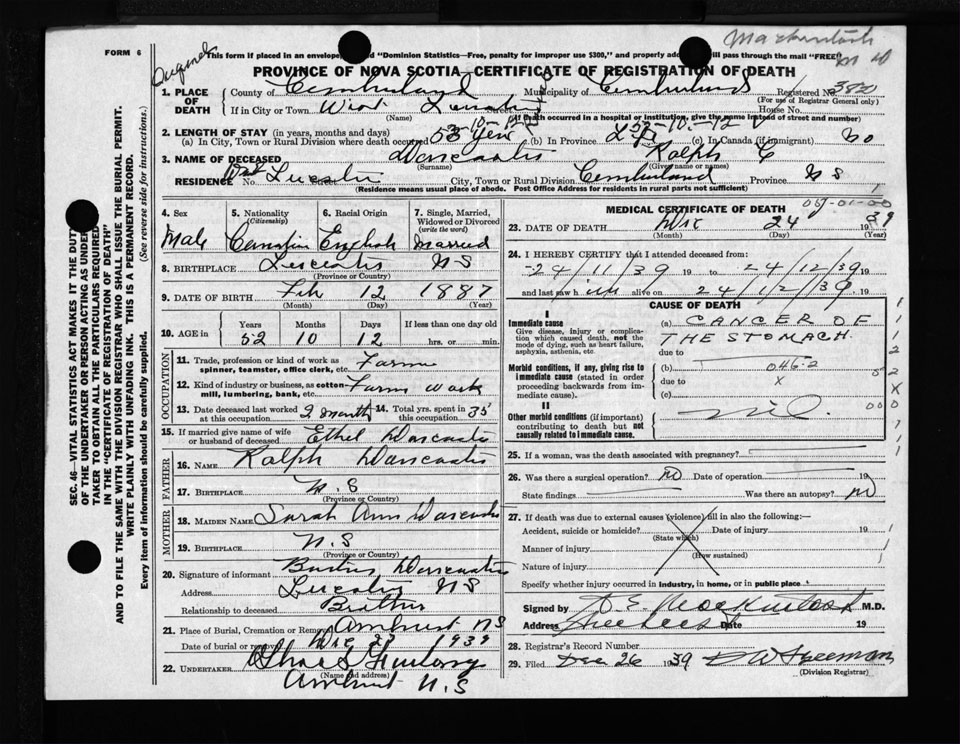 Mackintosh
M D
FORM 6
This form if placed in an envelope "Dominion Statistics—Free, penalty for improper use $300," and properly will pass through the mail "FREE"
PROVINCE OF NOVA SCOTIA—CERTIFICATE OF REGISTRATION OF DEATH
1. PLACE OF DEATH County of Cumberland Municipality of Cumberland Registered No. 3820
(For use of Registrar General only)
If in City or Town West House No.
(Name) (If death occurred in a hospital or institution, give the name instead of street and number)
2. LENGTH OF STAY (in years, months and days)
(a) In City, Town or Rural Division where death occurred 53 (b) In Province (c) In Canada (if immigrant) No
3. NAME OF DECEASED Ralph C
(Surname) (Given name or names)
RESIDENCE No. West Street City, Town or Rural Division Cumberland Province N S
(Residence means usual place of abode. Post Office Address for residents in rural parts not sufficient)
4. Sex Male
5. Nationality (Citizenship) Canadian
6. Racial Origin English
7. Single, Married, Widowed or Divorced (write the word) Married
8. BIRTHPLACE N S
(Province or Country)
9. DATE OF BIRTH Feb 12 1887
(Month) (Day) (Year)
10. AGE in Years Months Days If less than one day old
52 10 12 hrs. or min.
OCCUPATION
11. Trade, profession or kind of work as spinner, teamster, office clerk, etc. Farmer
12. Kind of industry or business, as cotton-mill, lumbering, bank, etc. Farm Work
13. Date deceased last worked at this occupation 2 months 14. Total yrs. spent in this occupation 35
15. If married give name of wife or husband of deceased Ethel
FATHER
16. NAME Ralph
17. BIRTHPLACE N.S
(Province or Country)
MOTHER
18. MAIDEN NAME Sarah Ann
19. BIRTHPLACE N.S
(Province or Country)
20. Signature of informant
Address N S
Relationship to deceased Brother
21. Place of Burial, Cremation or Removal Amherst N S
Date of burial or removal Dec 1939
22. UNDERTAKER
(Name and address)
Amherst N.S
MEDICAL CERTIFICATE OF DEATH
23. DATE OF DEATH Dec 24 1939
(Month) (Day) (Year)
24. I HEREBY CERTIFY that I attended deceased from:
24/11/39 19 to 24/12/39 19
and last saw h im alive on 24/12/39 19
CAUSE OF DEATH
I
Immediate cause
Give disease, injury or complication which caused death, not the mode of dying, such as heart failure, asphyxia, asthenia, etc.
(a) CANCER OF
THE STOMACH
due to
Morbid conditions, if any, giving rise to immediate cause (stated in order proceeding backwards from immediate cause).
(b) 046-2
due to X
(c)
II
Other morbid conditions (if important) contributing to death but not causally related to immediate cause.
Nil
25. If a woman, was the death associated with pregnancy?
26. Was there a surgical operation? No Date of operation 19
State findings Was there an autopsy? No
27. If death was due to external causes (violence) fill in also the following:—
Accident, suicide or homicide? Date of injury 19
(State which)
Manner of injury
(How sustained)
Nature of injury
Specify whether injury occurred in industry, in home, or in public place
Signed by D E Mackintosh M.D.
Address Date 19
28. Registrar's Record Number
29. Filed Dec 26 1939 Freeman
(Division Registrar)
SEC. 46—VITAL STATISTICS ACT MAKES IT THE DUTY
OF THE UNDERTAKER OR PERSON ACTING AS UNDER
TAKER TO OBTAIN ALL THE PARTICULARS REQUIRED
IN THE "CERTIFICATE OF REGISTRATION OF DEATH"
AND TO FILE THE SAME WITH THE DIVISION REGISTRAR WHO SHALL ISSUE THE BURIAL PERMIT.
WRITE PLAINLY WITH UNFADING INK. THIS IS A PERMANENT RECORD.
Every item of information should be carefully supplied. (See reverse side for instructions.)